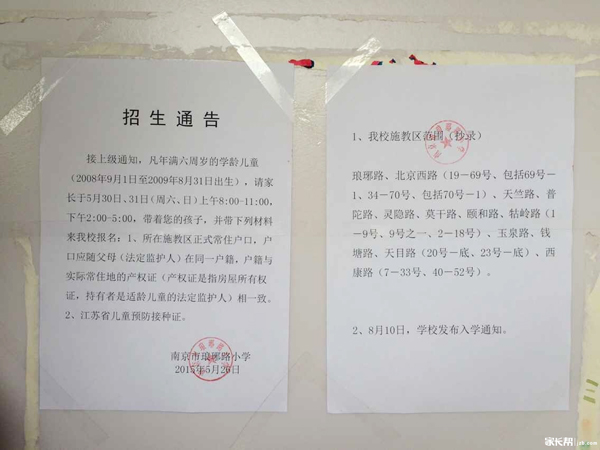 招生通告
接上级通知，凡年满六周岁的学龄儿童
（2008年9月1日至2009年8月31日出生），请家
长于5月30日、31日（周六、日）上午8:00-11:00,
下午2:00-5:00，带着您的孩子，并带下列材料
来我校报名：1、所在施教区正式常住户口，户
口应随父母（法定监护人）在同一户籍，户籍与
实际常住地的产权证（产权证是指房屋所有权
证，持有者是适龄儿童的法定监护人）相一致。
2、江苏省儿童预防接种证。
南京市琅琊路小学
2015年5月26日
1、我校施教区范围（抄录）
琅琊路、北京西路（19－69号、包括69号－
1、34－70号、包括70号－1）、天竺路、普
陀路、灵隐路、莫干路、颐和路、牯岭路（1
－9号、9号之一、2－18号）、玉泉路、钱
塘路、天目路（20号－底、23号－底）、西
康路（7－33号、40－52号）。
2、8月10日，学校发布入学通知。
家长帮 jzb.com